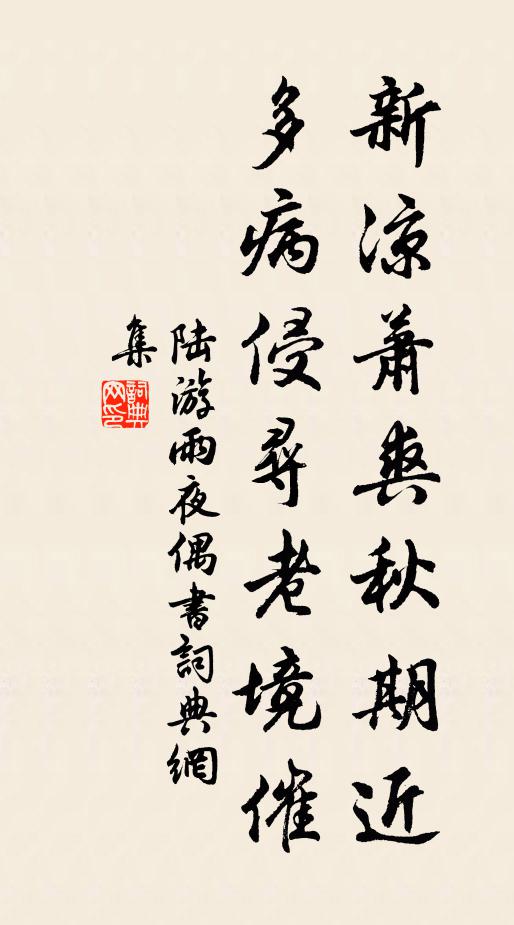 新涼蕭爽秋期近
多病侵尋老境催
陆游雨夜偶書詞典網
集
詞典
网印